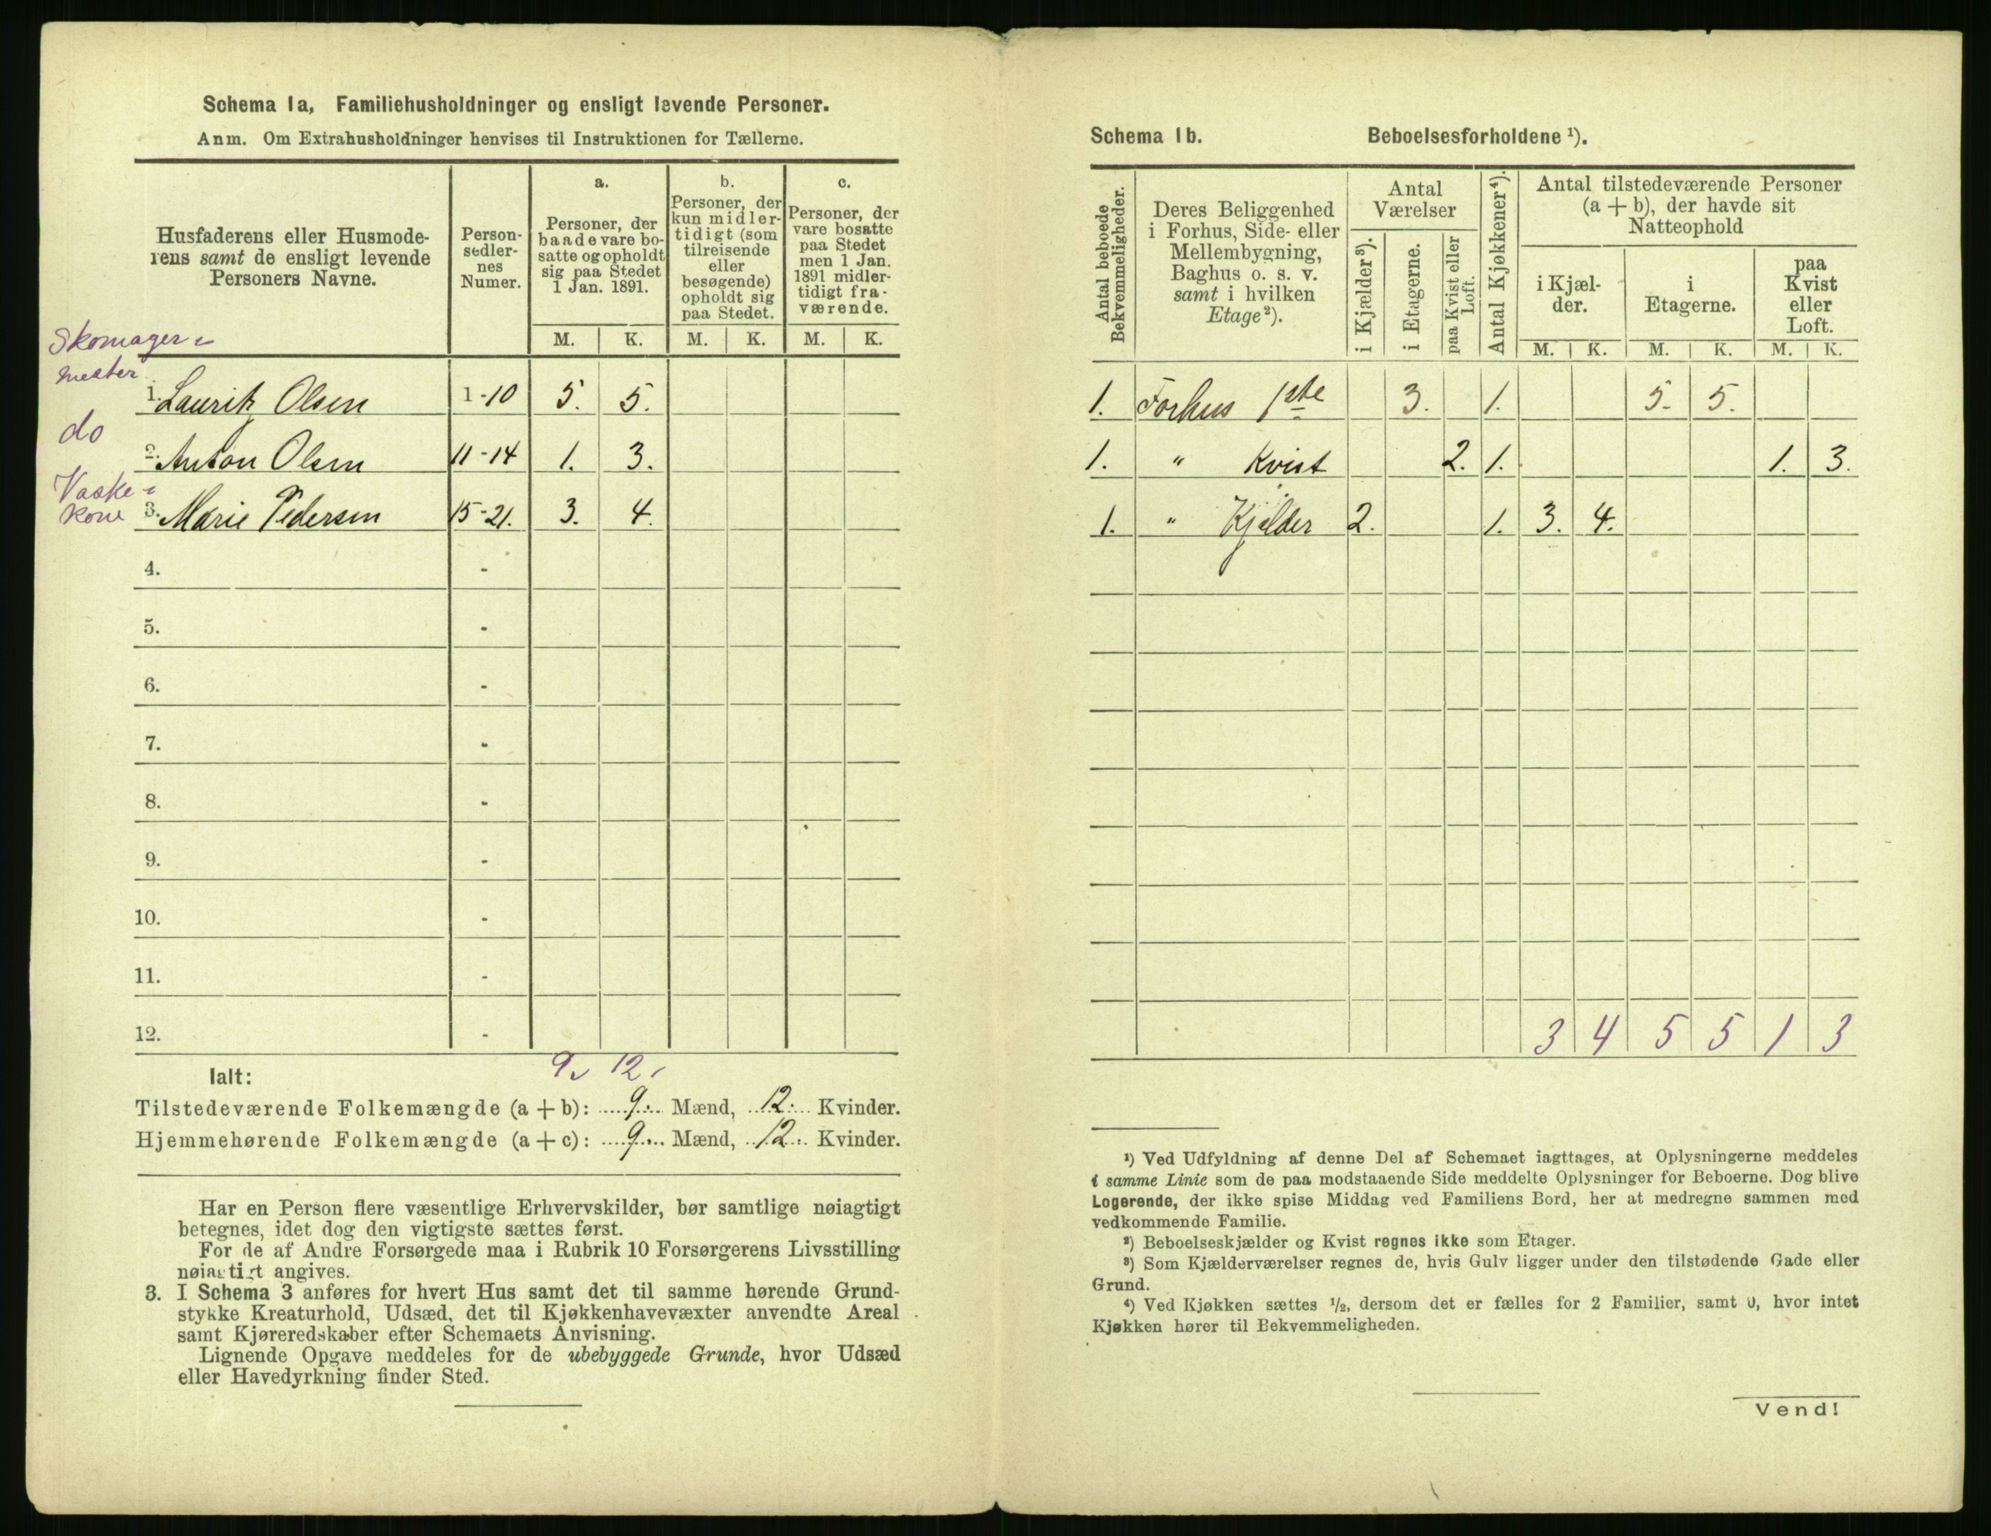 Schema 1a, Familiehusholdninger og ensligt levende Personer.
Anm. Om Extrahusholdninger henvises til Instruktionen for Tællerne.
Husfaderens eller Husmode-
rens samt de ensligt levende
Personers Navne.
Person-
sedler-
nes
Numer.
a.
Personer, der
baade vare bo-
satte og opholdt
sig paa Stedet
1 Jan. 1891.
b.
Personer, der
kun midler-
tidigt (som
tilreisende
eller
besøgende)
opholdt sig
paa Stedet.
c.
Personer, der
vare bosatte
paa Stedet
men 1 Jan.
1891 midler-
tidigt fra-
værende.
M. K. M. K. M. K.
Skomager-
mester
1. Laurits Olsen 1-10 5. 5.
do
2. Anton Olsen 11-14 1. 3.
Vaske-
kone
3. Marie Pedersen 15-21. 3. 4.
4. -
5. -
6. -
7. -
8. -
9. -
10. -
11. -
12. -
9 12
Ialt:
Tilstedeværende Folkemængde (a + b): 9. Mænd, 12. Kvinder.
Hjemmehørende Folkemængde (a + c): 9. Mænd, 12. Kvinder.
Har en Person flere væsentlige Erhvervskilder, bør samtlige nøiagtigt
betegnes, idet dog den vigtigste sættes først.
For de af Andre Forsørgede maa i Rubrik 10 Forsørgerens Livsstilling
nøiagtigt angives.
3. I Schema 3 anføres for hvert Hus samt det til samme hørende Grund-
stykke Kreaturhold, Udsæd, det til Kjøkkenhavevæxter anvendte Areal
samt Kjøreredskaber efter Schemaets Anvisning.
Lignende Opgave meddeles for de ubebyggede Grunde, hvor Udsæd
eller Havedyrkning finder Sted.
Schema 1b. Beboelsesforholdene ¹).
Antal beboede
Bekvemmeligheder.
Deres Beliggenhed
i Forhus, Side- eller
Mellembygning,
Baghus o. s. v.
samt i hvilken
Etage²).
Antal
Værelser
i Kjælder³).
i Etagerne.
paa Kvist eller
Loft.
Antal Kjøkkener⁴).
Antal tilstedeværende Personer
(a + b), der havde sit
Natteophold
i Kjæl-
der.
i
Etagerne.
paa
Kvist
eller
Loft.
M. K. M. K. M. K.
1. Forhus 1ste 3. 1. 5. 5.
1. " Kvist 2. 1. 1. 3.
1. " Kjelder 2. 1. 3. 4.
3 4 5 5 1 3
¹) Ved Udfyldning af denne Del af Schemaet iagttages, at Oplysningerne meddeles
i samme Linie som de paa modstaaende Side meddelte Oplysninger for Beboerne. Dog blive
Logerende, der ikke spise Middag ved Familiens Bord, her at medregne sammen med
vedkommende Familie.
²) Beboelseskjælder og Kvist regnes ikke som Etager.
³) Som Kjælderværelser regnes de, hvis Gulv ligger under den tilstødende Gade eller
Grund.
⁴) Ved Kjøkken sættes ½, dersom det er fælles for 2 Familier, samt 0, hvor intet
Kjøkken hører til Bekvemmeligheden.
Vend!